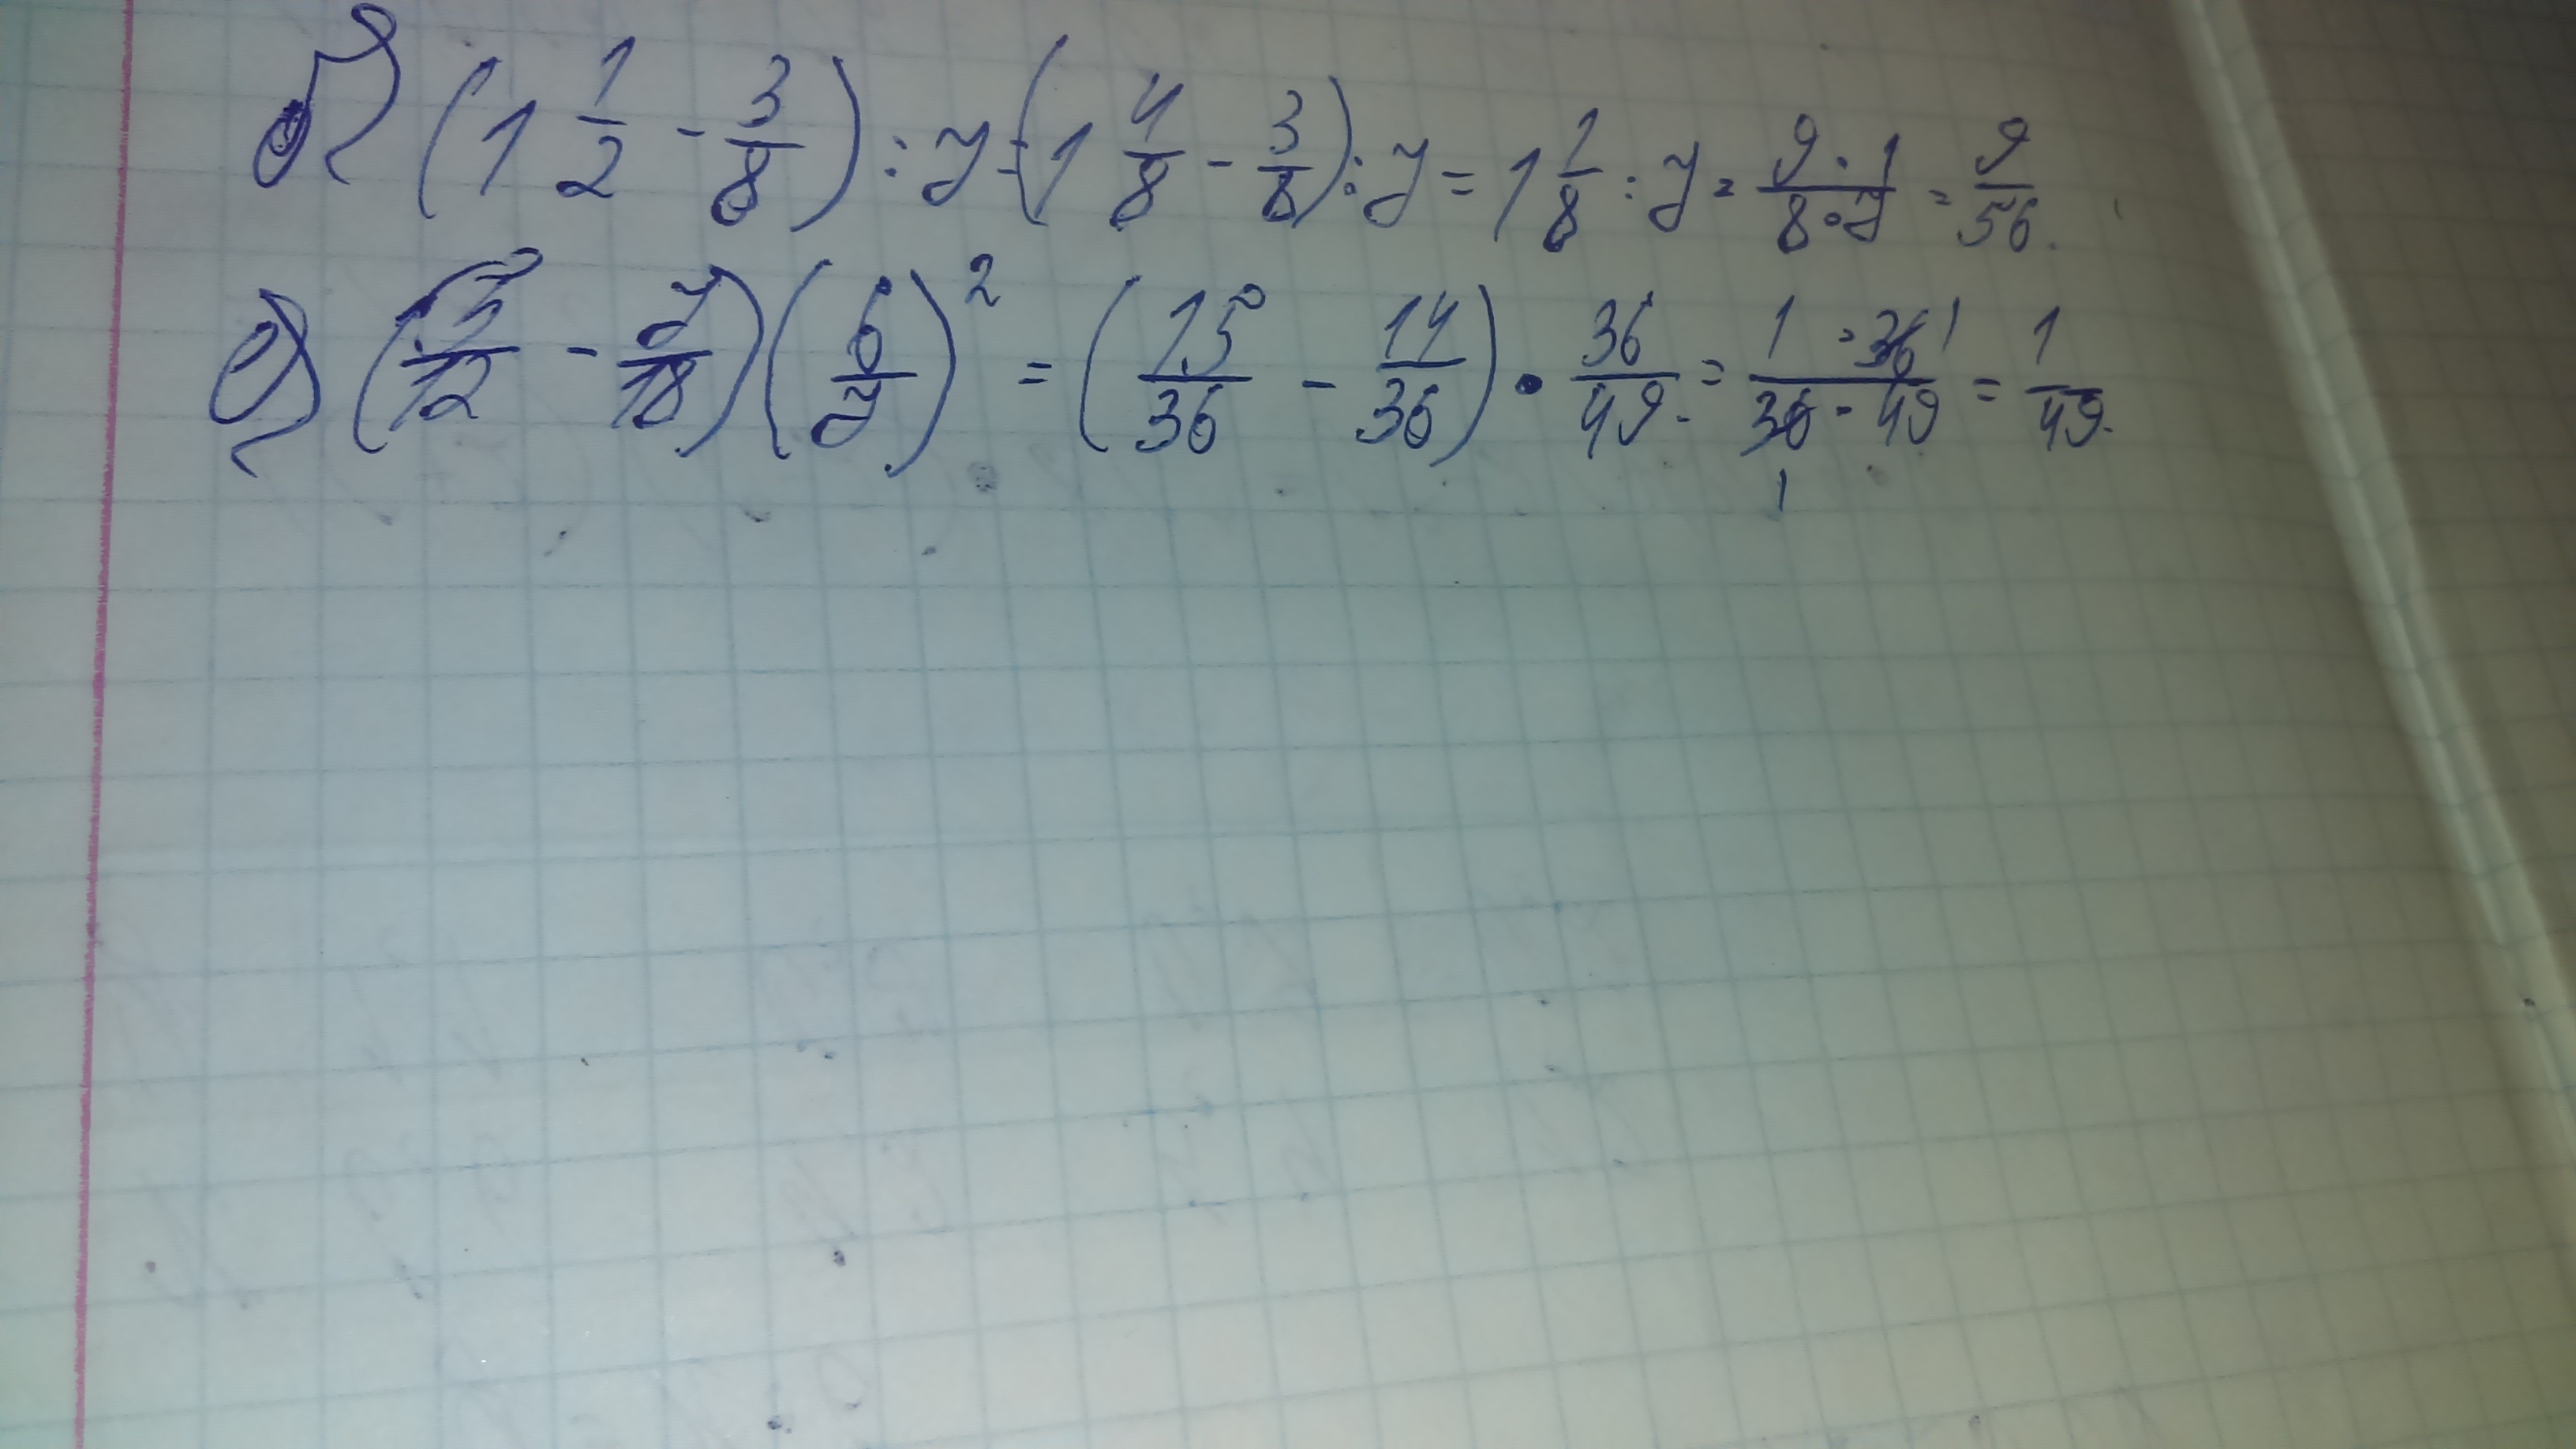 б) (1 1/2 - 3/8) : 7 = (1 4/8 - 3/8) : 7 = 1 1/8 : 7 = 9·1/8·7 = 9/56.
е) (5/12 - 7/18)(6/7)² = (15/36 - 14/36) · 36/49 = 1·36 1/36·49 1 = 1/49.